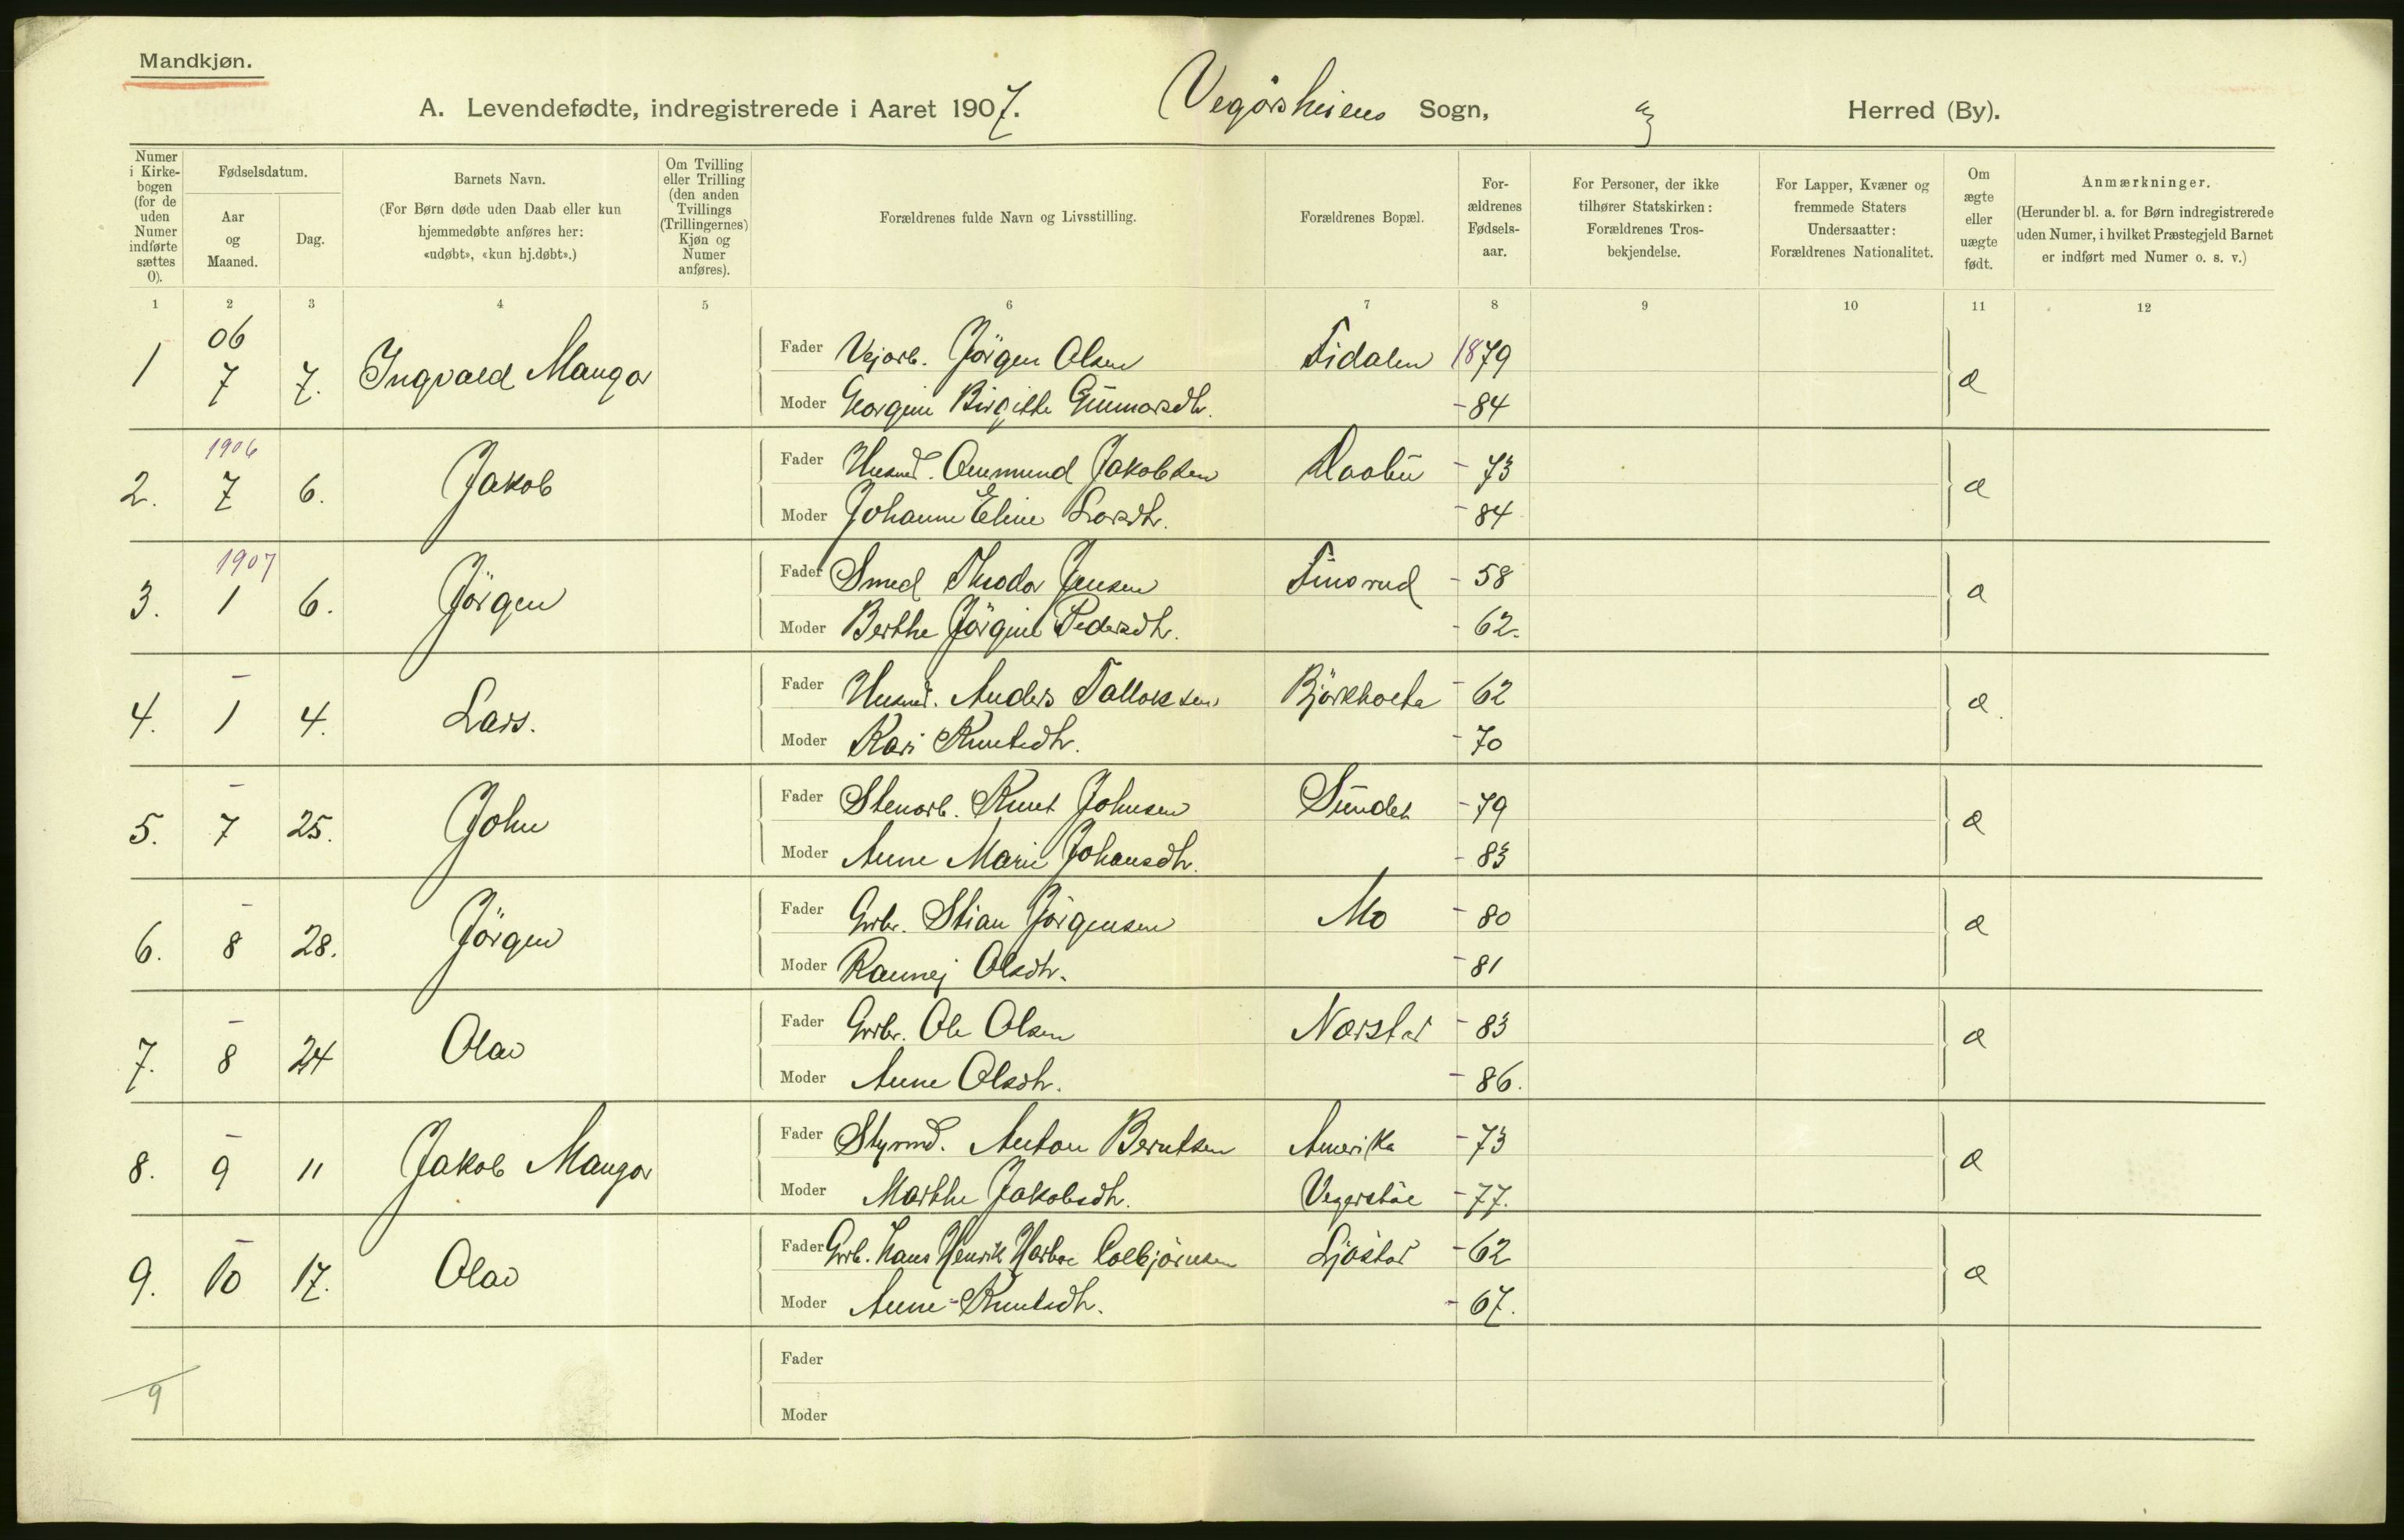 Mandkjøn.
A. Levendefødte, indregistrerede i Aaret 1907. Vegårsheiens Sogn, Herred (By).
Numer i Kirkebogen (for de uden Numer indførte sættes 0).
Fødselsdatum.
Aar og Maaned.
Dag.
Barnets Navn.
(For Børn døde uden Daab eller kun hjemmedøbte anføres her: «udøbt», «kun hj.døbt».)
Om Tvilling eller Trilling (den anden Tvillings (Trillingernes) Kjøn og Numer anføres).
Forældrenes fulde Navn og Livsstilling.
Forældrenes Bopæl.
Forældrenes Fødselsaar.
For Personer, der ikke tilhører Statskirken: Forældrenes Trosbekjendelse.
For Lapper, Kvæner og fremmede Staters Undersaatter: Forældrenes Nationalitet.
Om ægte eller uægte født.
Anmærkninger.
(Herunder bl. a. for Børn indregistrerede uden Numer, i hvilket Præstegjeld Barnet er indført med Numer o. s. v.)
1 2 3 4 5 6 7 8 9 10 11 12
06
1 7 7. Ingvald Mangor Fader Vejarb. Jörgen Olsen Fidalen 1879 æ
Moder Georgine Birgitte Gunnarsdtr. - 84
1906
2. 7 6. Jakob Fader Husmd. Aamund Jakobsen - 73 æ
Moder Johanne Eline Larsdtr. - 84
1907
3. 1 6. Jörgen Fader Smed Theodor Jensen Finsrud - 58 æ
Moder Berthe Jörgine Pedersdtr. - 62.
-
4. 1 4. Lars. Fader Husmd. Anders Tallaksen - 62 æ.
Moder Kari Knutsdtr. - 70
-
5. 7 25. John Fader Stenarb. Knut Johnsen Sundet - 79 æ
Moder Anne Marie Johansdtr. - 83
-
6. 8 28. Jörgen Fader Grbr. Stian Jörgensen Mo - 80 æ
Moder Rannej Olsdtr. - 81
-
7. 8 24 Olav Fader Grbr. Ole Olsen Narstad - 83 æ
Moder Anne Olsdtr. - 86.
-
8. 9 11 Jakob Mangor Fader Styrmd. Anton Berntsen Amerika - 73 æ
Moder Marthe Jakobsdtr. - 77.
-
9. 10 17. Olav Fader Grb. Hans Henrik Harboe Colbjörnsen - 62 æ
Moder Anne Knutsdtr. - 67.
Fader
9
Moder